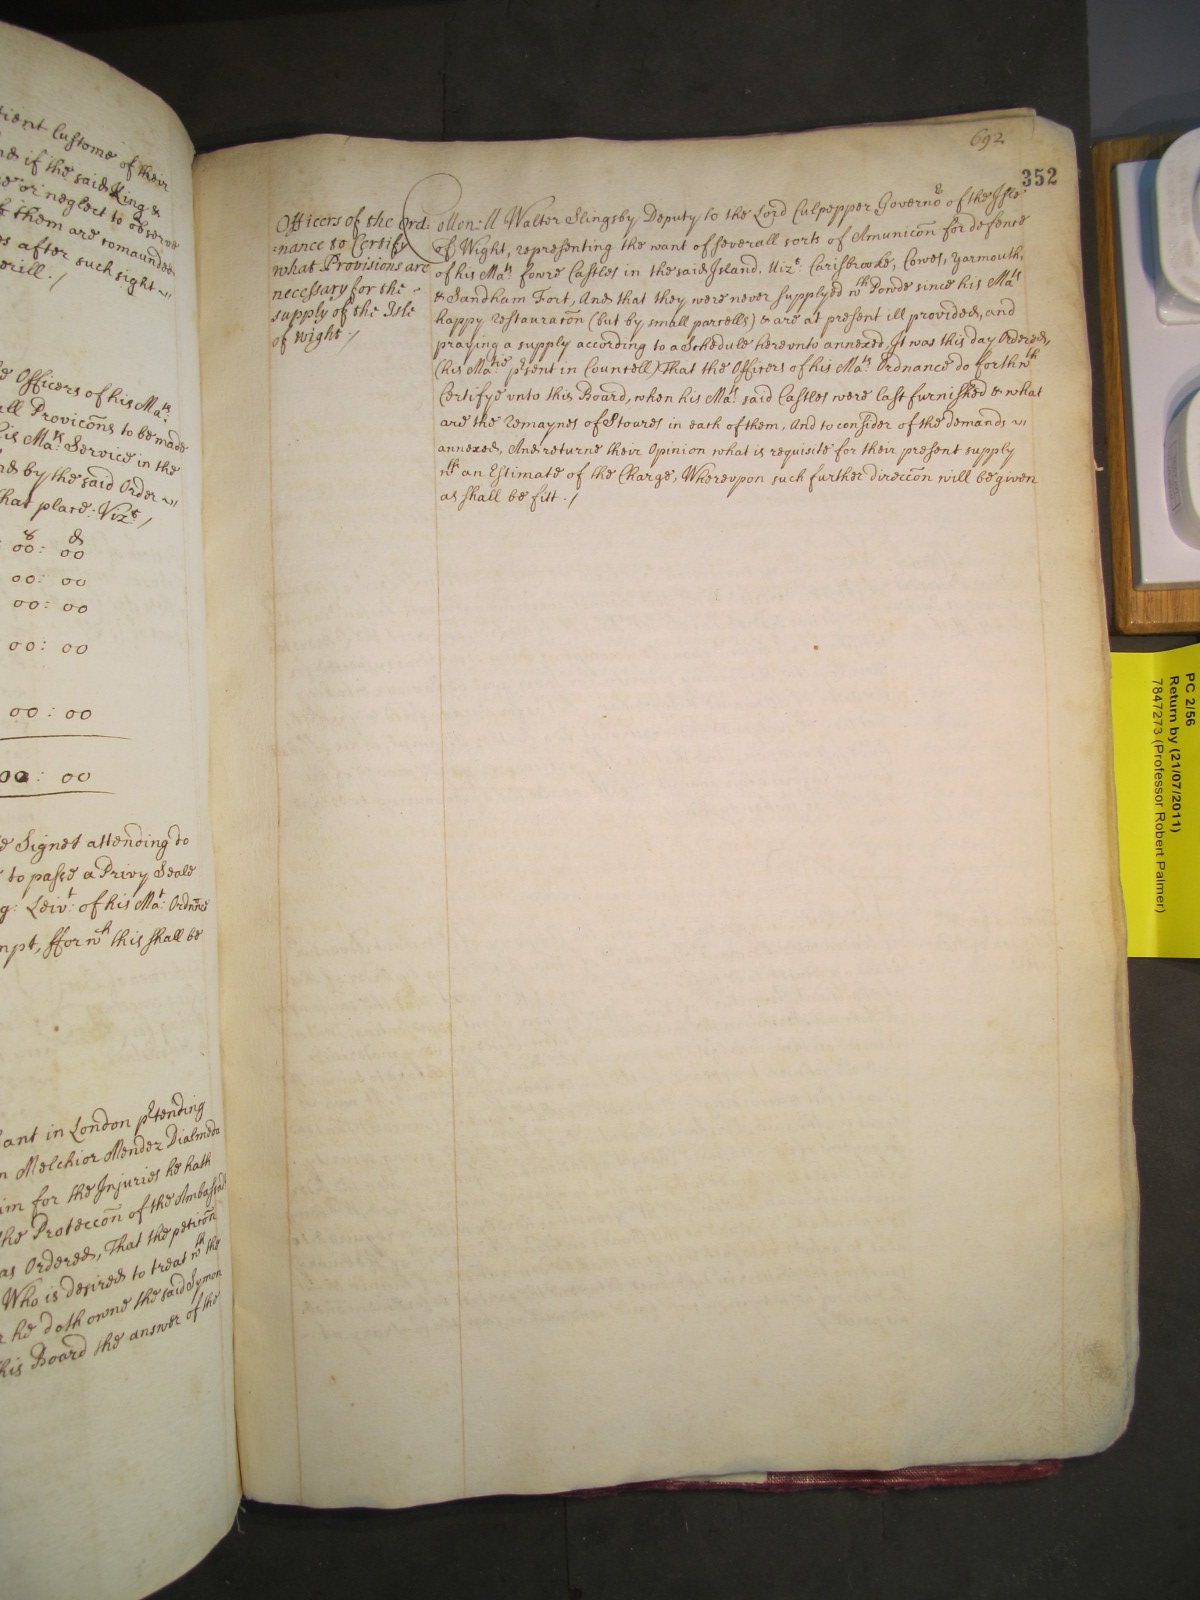 ient Custome of their
if the said King &
or neglect to observe
them are remaunded
after such sight
Officers of his Ma:ts
all Provicõns to be made
his Ma:ts Service in the
by the said Order
that place: Vizt /
s d
00: 00
00: 00
00: 00
00: 00
00: 00
00: 00
Signet attending to
to passe a Privy Seale
Leivt: of his Mat: Ordnñce
mpt, ffor wch this shall be
ant in London prtending
Melchior Mendez Dialmeda
im for the Injuries he hath
the Proteccõn of the Ambassad
as Ordered, That the peticõn
Who is desired to treat wth the
he doth owne the said Symon
his Board the answer of the
692
352
Officers of the Ord-
=nance to Certify
what Provisions are
necessary for the
supply of the Isle
of wight /
Collon:ll Walter Slingsby Deputy to the Lord Culpepper Governor of the Isle
of Wight, representing the want of severall sorts of Amunicõn for defence
of his Mats fowre Castles in the said Island. Vizt: Carisbrooke, Cowes, Yarmouth,
& Sandham Fort, And that they were never supplyed wth Powder since his Mats
happy restauracõn (but by small parcells) & are at present ill provided, and
praying a supply according to a Schedule herevnto annexed, It was this day Ordered,
(his Matie prsent in Councell) That the Officers of his Mats Ordnance do forthwth
Certifye vnto this Board, when his Mats said Castles were last furnished & what
are the remaynes of Stoures in each of them, And to consider of the demands
annexed, And returne their Opinion what is requisite for their present supply
wth an Estimate of the Charge, Wherevpon such further direccõn will be given
as shall be fitt. /
PC 2/56
Return by (21/07/2011)
7847273 (Professor Robert Palmer)